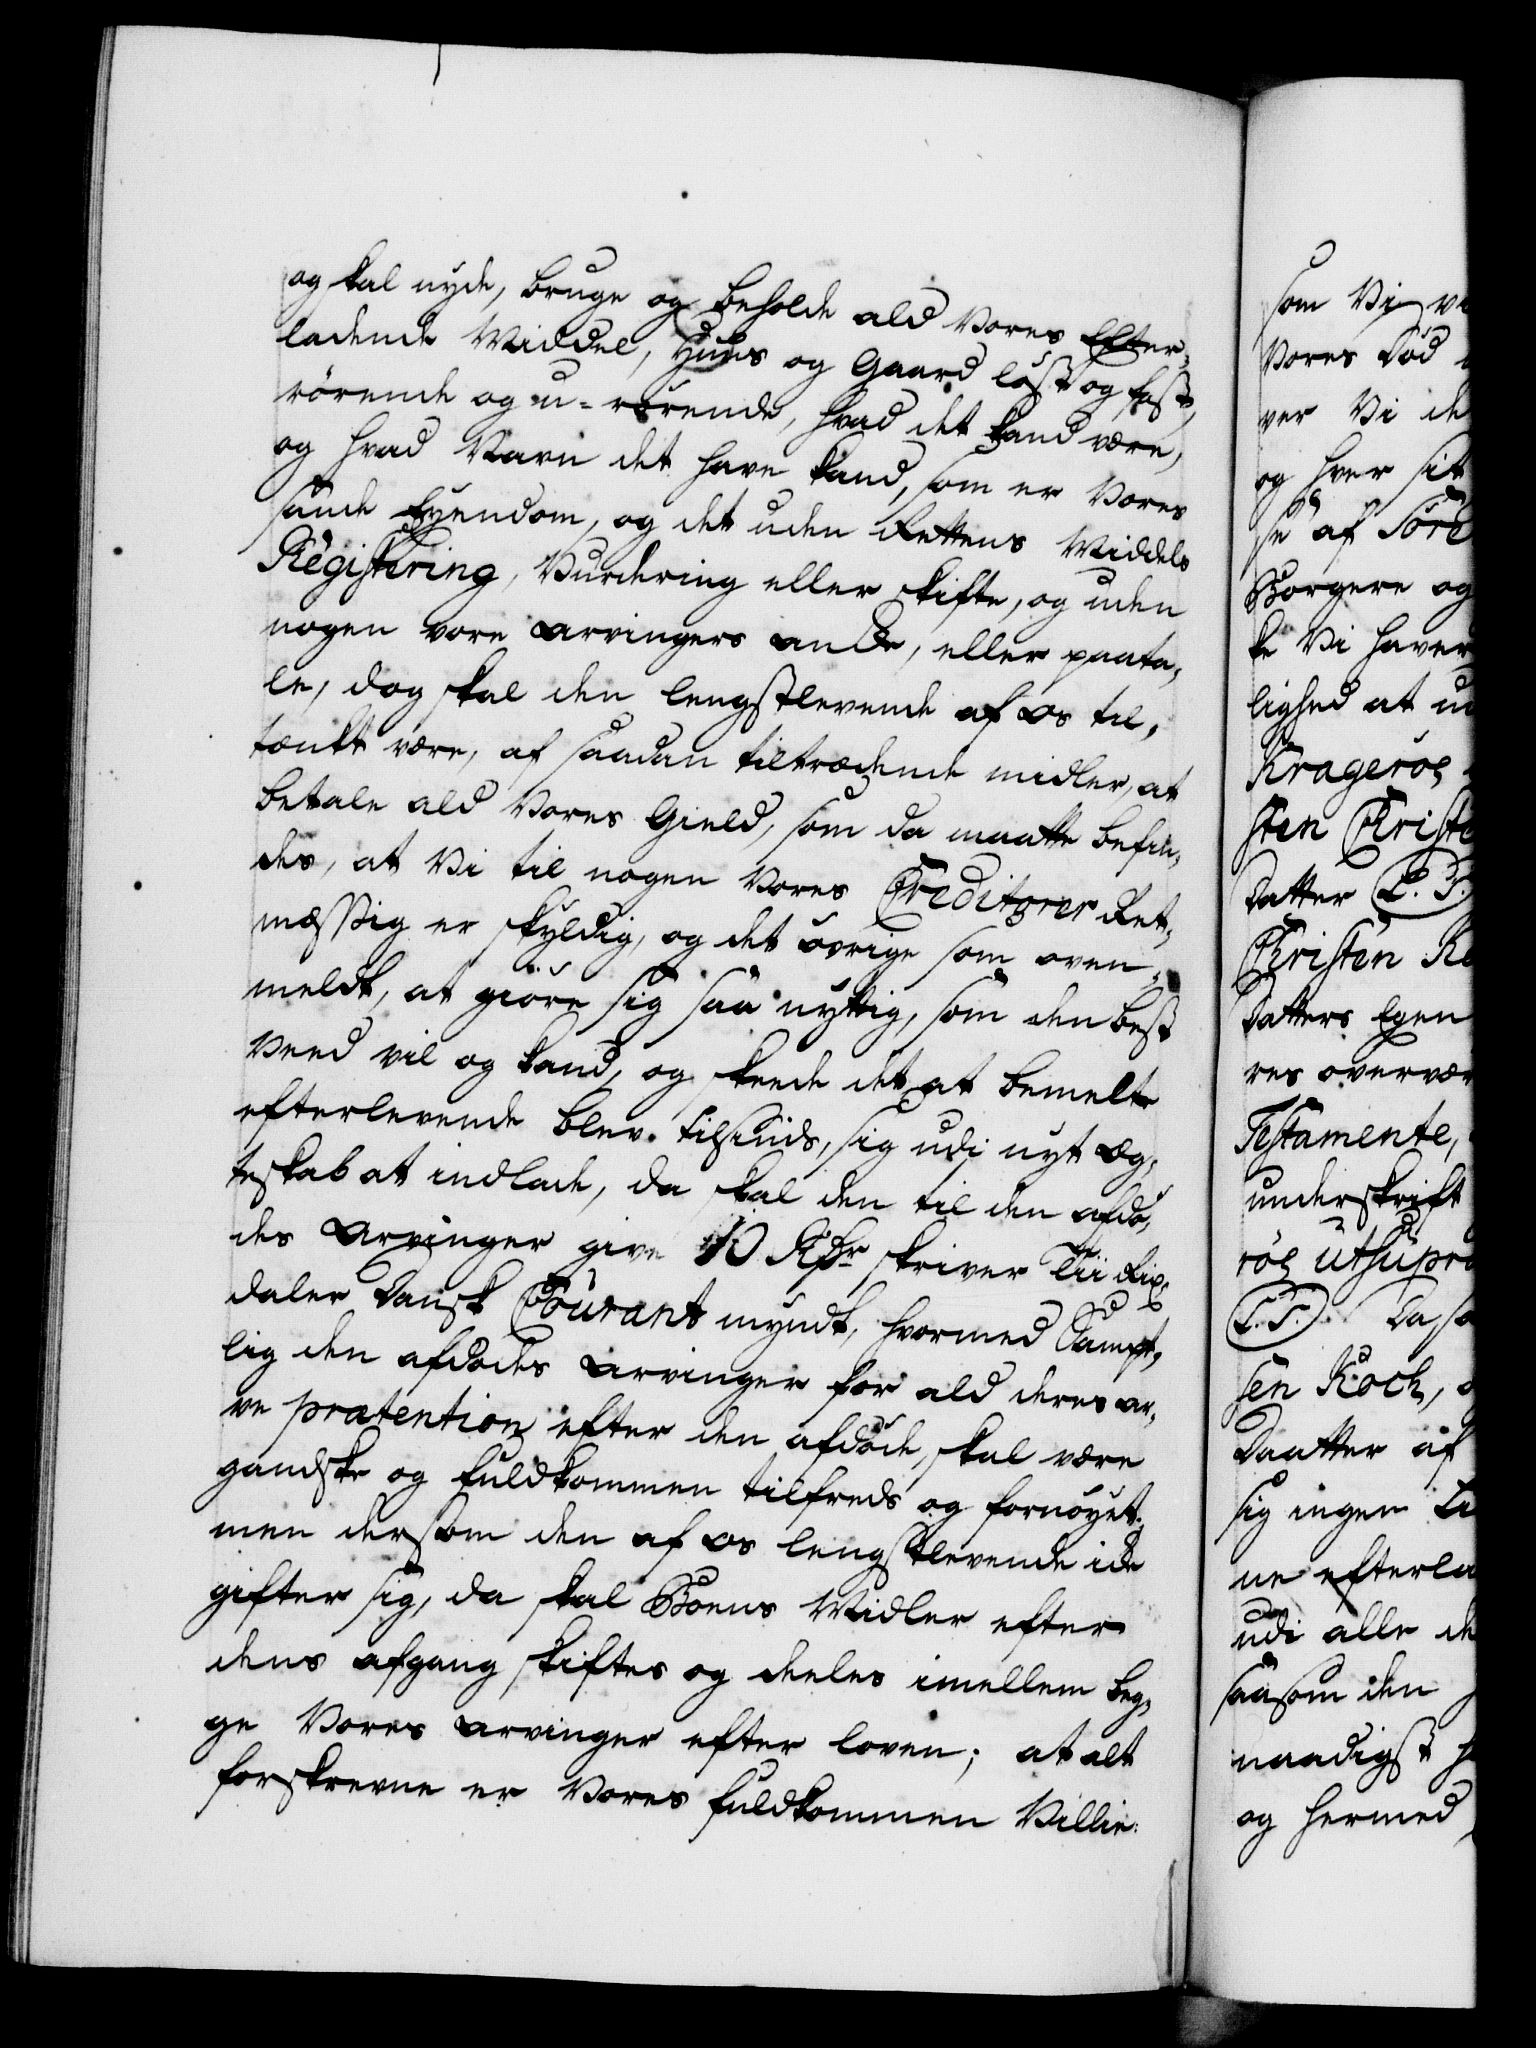 og skal nyde, bruge og beholde ald Vores Efter-
ladende Middel, Huus og Gaard løst og fast,
rørende og u-rørende, hvad det kand være,
og hvad Navn det have kand, som er Vores
sande Eyendom, og det uden Rettens Middels
Registering, Vurdering eller skifte, og uden
nogen vore arvingers anke, eller paata-
le, dog skal den lengstlevende af os til-
tænkt være, af saadan tiltrædende midler, at
betale ald Vores Gield, som da maatte befin-
des, at Vi til nogen Vores Creditorer Ret-
mæssig er skyldig, og det øvrige som oven-
meldt, at giøre sig saa nyttig, som den best
Veed vil og kand, og skeede det at bemelte
efterlevende blev tilsinds, sig udi nyt æg-
teskab at indlade, da skal den til den afdø-
des Arvinger give 10 Rdr skriver Tii Rix-
daler Dansk Courant myndt, hvormed Sampt-
lig den afdødes Arvinger for ald deres ar-
ve prætention efter den afdøde, skal være
gandske og fuldkommen tilfreds og fornøyet;
men dersom den af os lengstlevende icke
gifter sig, da skal Boens Midler efter
dens afgang skiftes og deeles imellem beg-
ge Vores arvinger efter loven; at alt
forskrevne er Vores fuldkommen Villie:
som Vi
Vores Død
ver Vi
og hver sit
se af
Borgere og
ke Vi haver
lighed at
Kragerøe
sten
Datter L. S.
Christen
Datters Egen
res
Testamente,
underskrift
røe utsupra
L. S. Da
sen Koch,
Daatter af
sig ingen
ne
udi alle
saasom den
naadigst
og hermed